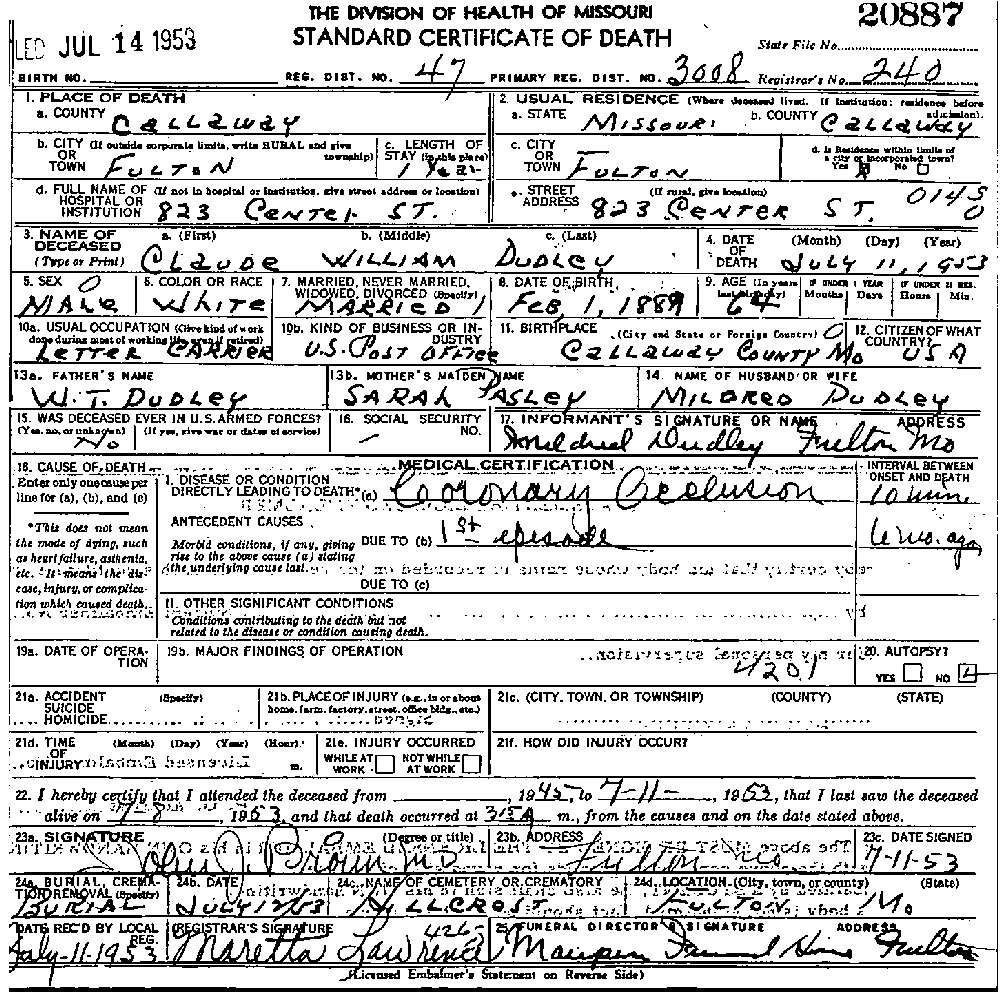 THE DIVISION OF HEALTH OF MISSOURI
20887
LED JUL 14 1953
STANDARD CERTIFICATE OF DEATH
State File No.
BIRTH NO. REG. DIST. NO. 47 PRIMARY REG. DIST. NO. 3008 Registrar's No. 240
1. PLACE OF DEATH
a. COUNTY Callaway
2. USUAL RESIDENCE (Where deceased lived. If institution: residence before admission).
a. STATE Missouri b. COUNTY Callaway
b. CITY (If outside corporate limits, write RURAL and give township) OR TOWN Fulton
c. LENGTH OF STAY (in this place) 1 Year
c. CITY OR TOWN Fulton
d. Is Residence within limits of a city or incorporated town? Yes No
d. FULL NAME OF (If not in hospital or institution, give street address or location) HOSPITAL OR INSTITUTION 823 Center St.
e. STREET ADDRESS (If rural, give location) 823 Center St. 0145 0
3. NAME OF DECEASED (Type or Print) a. (First) Claude b. (Middle) William c. (Last) Dudley
4. DATE OF DEATH (Month) (Day) (Year) July 11, 1953
5. SEX 0 Male
6. COLOR OR RACE White
7. MARRIED, NEVER MARRIED, WIDOWED, DIVORCED (Specify) Married 1
8. DATE OF BIRTH Feb, 1, 1889
9. AGE (In years last birthday) 64 IF UNDER 1 YEAR Months Days IF UNDER 24 HRS. Hours Min.
10a. USUAL OCCUPATION (Give kind of work done during most of working life, even if retired) Letter Carrier
10b. KIND OF BUSINESS OR INDUSTRY U.S. Post Office
11. BIRTHPLACE (City and State or Foreign Country) 0 Callaway County Mo
12. CITIZEN OF WHAT COUNTRY? USA
13a. FATHER'S NAME W. T. Dudley
13b. MOTHER'S MAIDEN NAME Sarah Pasley
14. NAME OF HUSBAND OR WIFE Mildred Dudley
15. WAS DECEASED EVER IN U.S. ARMED FORCES? (Yes, no, or unknown) (If yes, give war or dates of service) No
16. SOCIAL SECURITY NO. –
17. INFORMANT'S SIGNATURE OR NAME ADDRESS Mildred Dudley Fulton Mo
18. CAUSE OF DEATH
Enter only one cause per line for (a), (b), and (c)
*This does not mean the mode of dying, such as heart failure, asthenia, etc. It means the disease, injury, or complication which caused death.
MEDICAL CERTIFICATION
INTERVAL BETWEEN ONSET AND DEATH
I. DISEASE OR CONDITION DIRECTLY LEADING TO DEATH* (a) Coronary Occlusion 10 min.
ANTECEDENT CAUSES
Morbid conditions, if any, giving rise to the above cause (a) stating the underlying cause last. DUE TO (b) 1st episode 6 mo. ago
DUE TO (c)
II. OTHER SIGNIFICANT CONDITIONS
Conditions contributing to the death but not related to the disease or condition causing death.
19a. DATE OF OPERATION
19b. MAJOR FINDINGS OF OPERATION
4201
20. AUTOPSY? YES NO
21a. ACCIDENT SUICIDE HOMICIDE (Specify)
21b. PLACE OF INJURY (e.g., in or about home, farm, factory, street, office bldg., etc.)
21c. (CITY, TOWN, OR TOWNSHIP) (COUNTY) (STATE)
21d. TIME OF INJURY (Month) (Day) (Year) (Hour) m.
21e. INJURY OCCURRED WHILE AT WORK NOT WHILE AT WORK
21f. HOW DID INJURY OCCUR?
22. I hereby certify that I attended the deceased from , 1945, to 7-11-, 1953, that I last saw the deceased
alive on 7-8, 1953, and that death occurred at m., from the causes and on the date stated above.
23a. SIGNATURE (Degree or title) John J. Brown MD
23b. ADDRESS Fulton Mo
23c. DATE SIGNED 7-11-53
24a. BURIAL, CREMATION, REMOVAL (Specify) Burial
24b. DATE July 12/53
24c. NAME OF CEMETERY OR CREMATORY Hillcrest
24d. LOCATION (City, town, or county) (State) Fulton Mo
DATE REC'D BY LOCAL REG. July-11-1953
REGISTRAR'S SIGNATURE Maretta Lawrence 426
25. FUNERAL DIRECTOR'S SIGNATURE ADDRESS Maupin Funeral Home Fulton
(Licensed Embalmer's Statement on Reverse Side)